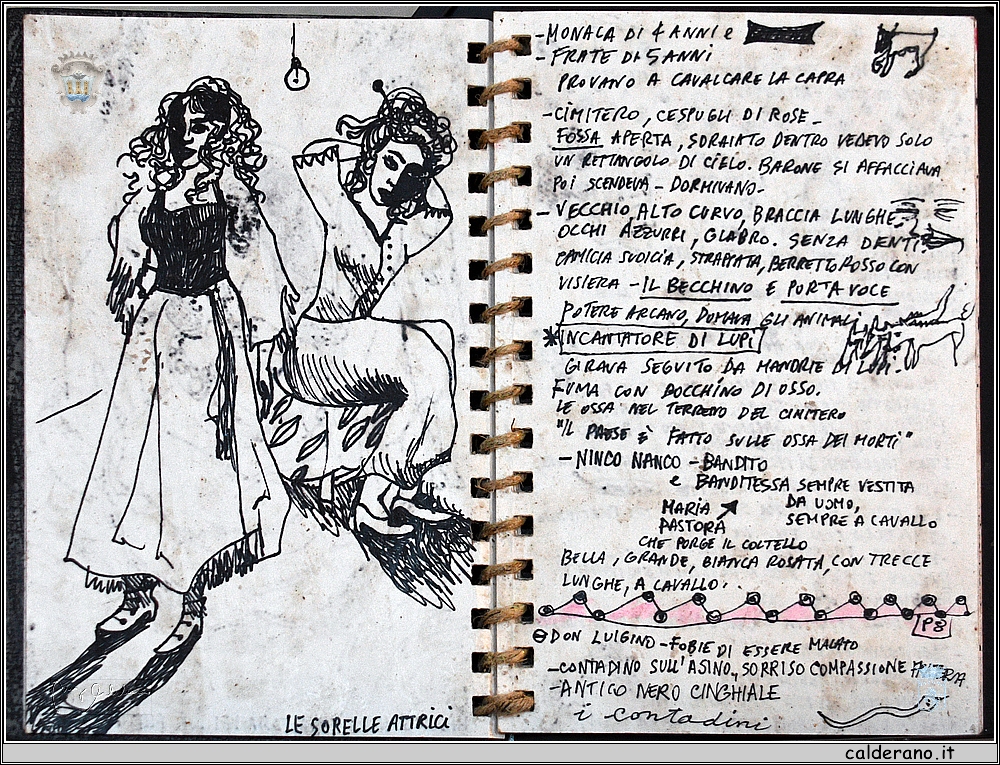 LE SORELLE ATTRICI
- MONACA DI 4 ANNI e
- FRATE DI 5 ANNI
PROVANO A CAVALCARE LA CAPRA
- CIMITERO, CESPUGLI DI ROSE -
FOSSA APERTA, SDRAIATO DENTRO VEDEVO SOLO
UN RETTANGOLO DI CIELO. BARONE SI AFFACCIAVA
POI SCENDEVA - DORMIVANO -
- VECCHIO, ALTO CURVO, BRACCIA LUNGHE -
OCCHI AZZURRI, GLABRO. SENZA DENTI
CAMICIA SUDICIA, STRAPPATA, BERRETTO ROSSO CON
VISIERA - IL BECCHINO E PORTAVOCE
POTERE ARCANO, DOMAVA GLI ANIMALI
* INCANTATORE DI LUPI
GIRAVA SEGUITO DA MANDRIE DI LUPI -
FUMA CON BOCCHINO DI OSSO.
LE OSSA NEL TERRENO DEL CIMITERO
"IL PAESE È FATTO SULLE OSSA DEI MORTI"
- NINCO NANCO - BANDITO
e BANDITESSA SEMPRE VESTITA
DA UOMO,
SEMPRE A CAVALLO
MARIA
PASTORA
CHE PORGE IL COLTELLO
BELLA, GRANDE, BIANCA ROSATA, CON TRECCE
LUNGHE, A CAVALLO..
P3
DON LUIGINO - FOBIE DI ESSERE MALATO
- CONTADINO SULL'ASINO, SORRISO COMPASSIONE
- ANTICO NERO CINGHIALE
i contadini
calderano.it